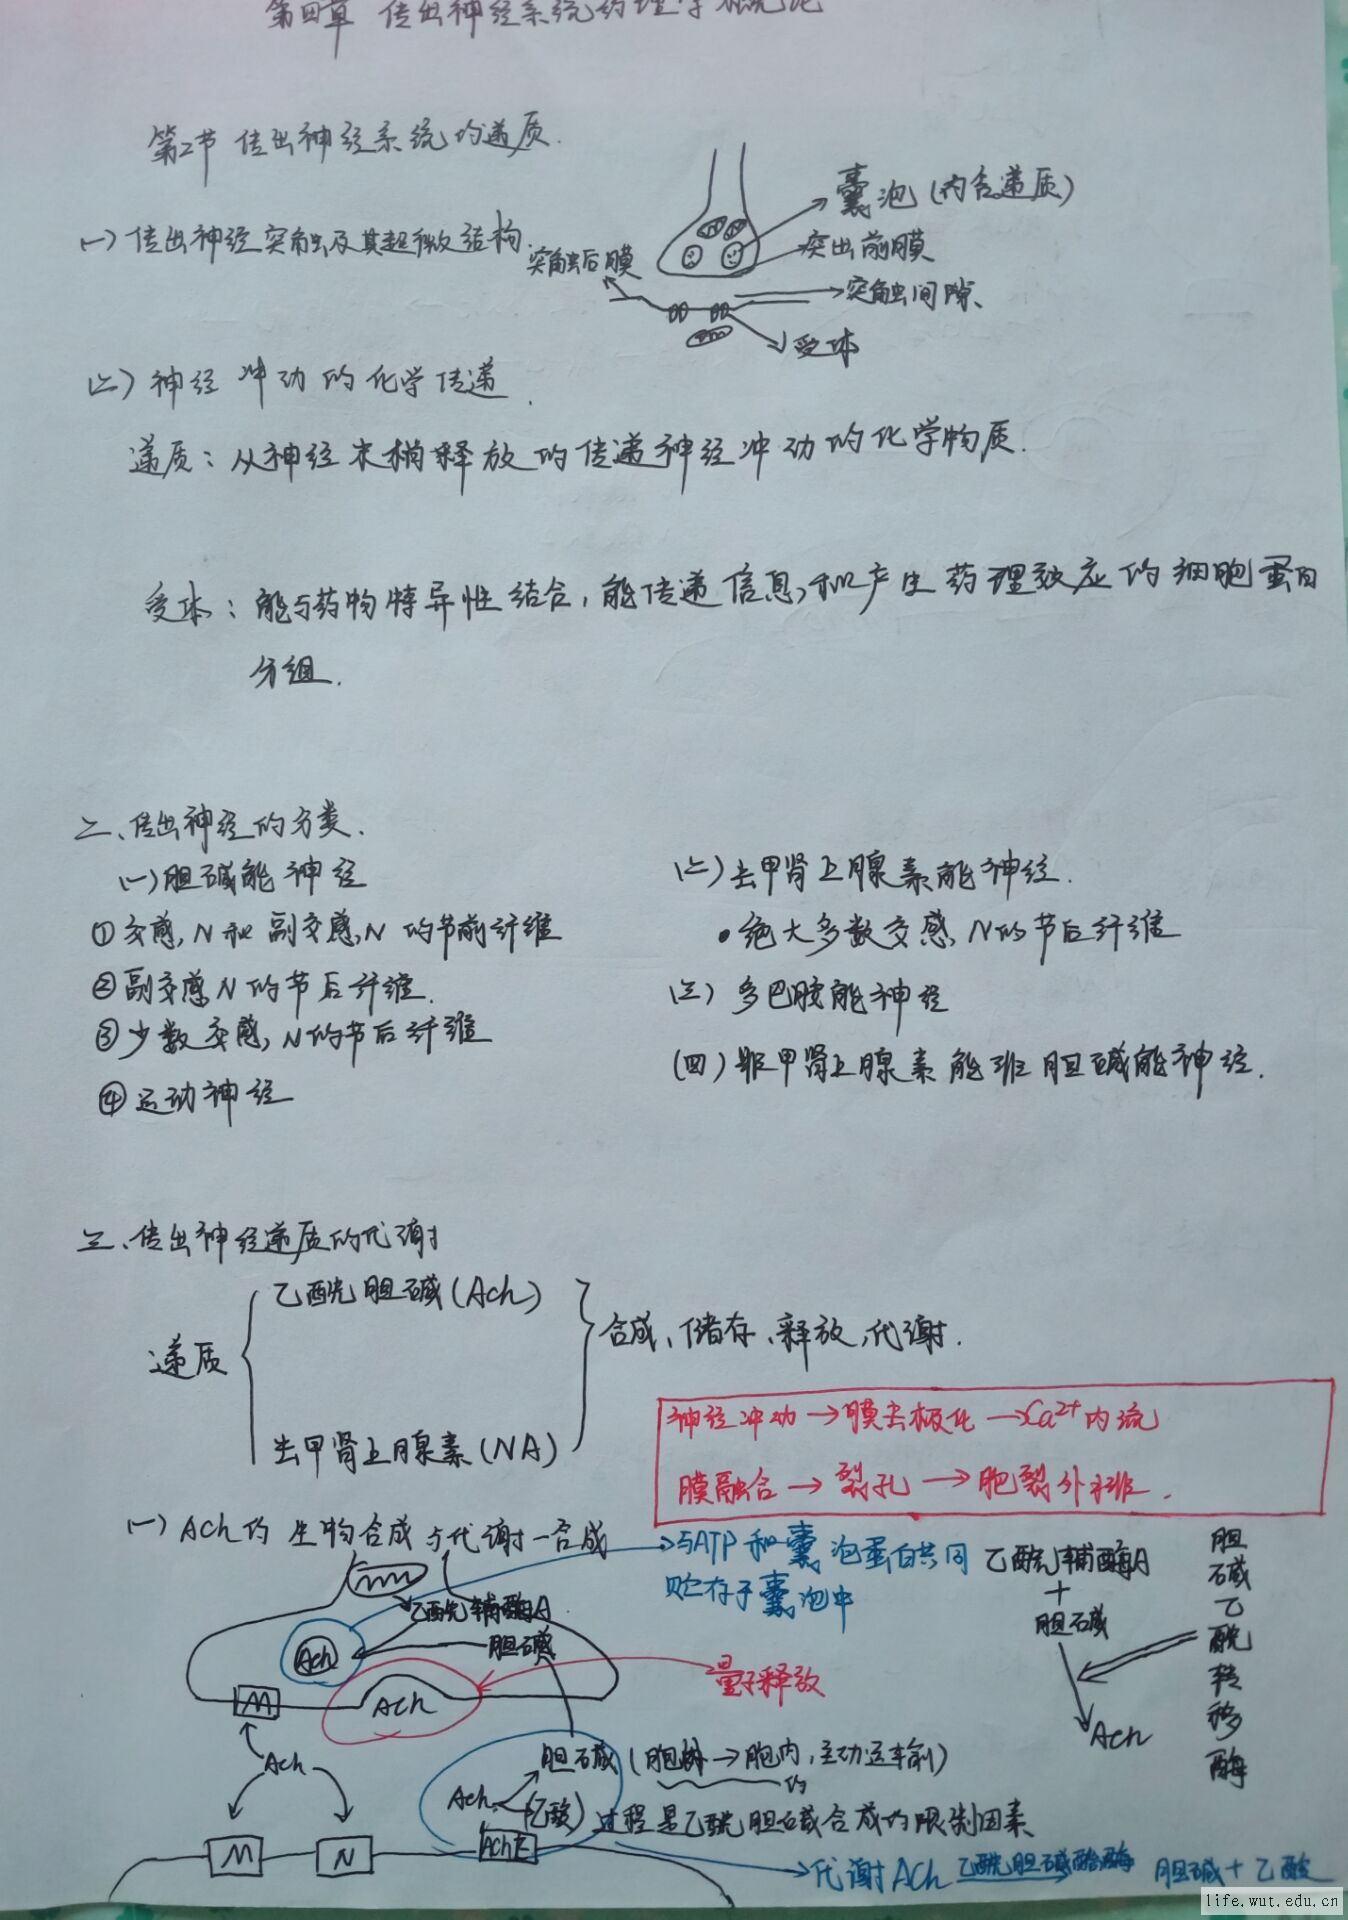 第四章 传出神经系统药理学概论
第2节 传出神经系统的递质.
囊泡(内含递质)
(一)传出神经突触及其超微结构.
突触后膜
突出前膜
突触间隙、
受体
(二)神经冲动的化学传递.
递质:从神经末梢释放的传递神经冲动的化学物质.
受体:能与药物特异性结合,能传递信息,和产生药理效应的细胞蛋白
分组.
二、传出神经的分类.
(一)胆碱能神经
①交感,N和副交感,N的节前纤维
②副交感N的节后纤维.
③少数交感,N的节后纤维
④运动神经
(二)去甲肾上腺素能神经.
•绝大多数交感,N的节后纤维
(三)多巴胺能神经
(四)非甲肾上腺素能非胆碱能神经.
三、传出神经递质的代谢
递质
乙酰胆碱(Ach)
去甲肾上腺素(NA)
合成、储存、释放,代谢.
神经冲动→膜去极化→Ca2+内流
膜融合→裂孔→胞裂外排.
(一)Ach的生物合成与代谢—合成
与ATP和囊泡蛋白共同
贮存于囊泡中
乙酰辅酶A
+
胆碱
Ach
胆碱乙酰转移酶
乙酰辅酶A
胆碱
Ach
Ach
量子释放
M
Ach
胆碱(胞外→胞内,主动运输)
的
Ach
(乙酸)过程是乙酰胆碱合成的限制因素
M
N
AchE
代谢Ach 乙酰胆碱酯酶 胆碱+乙酸
life.wut.edu.cn